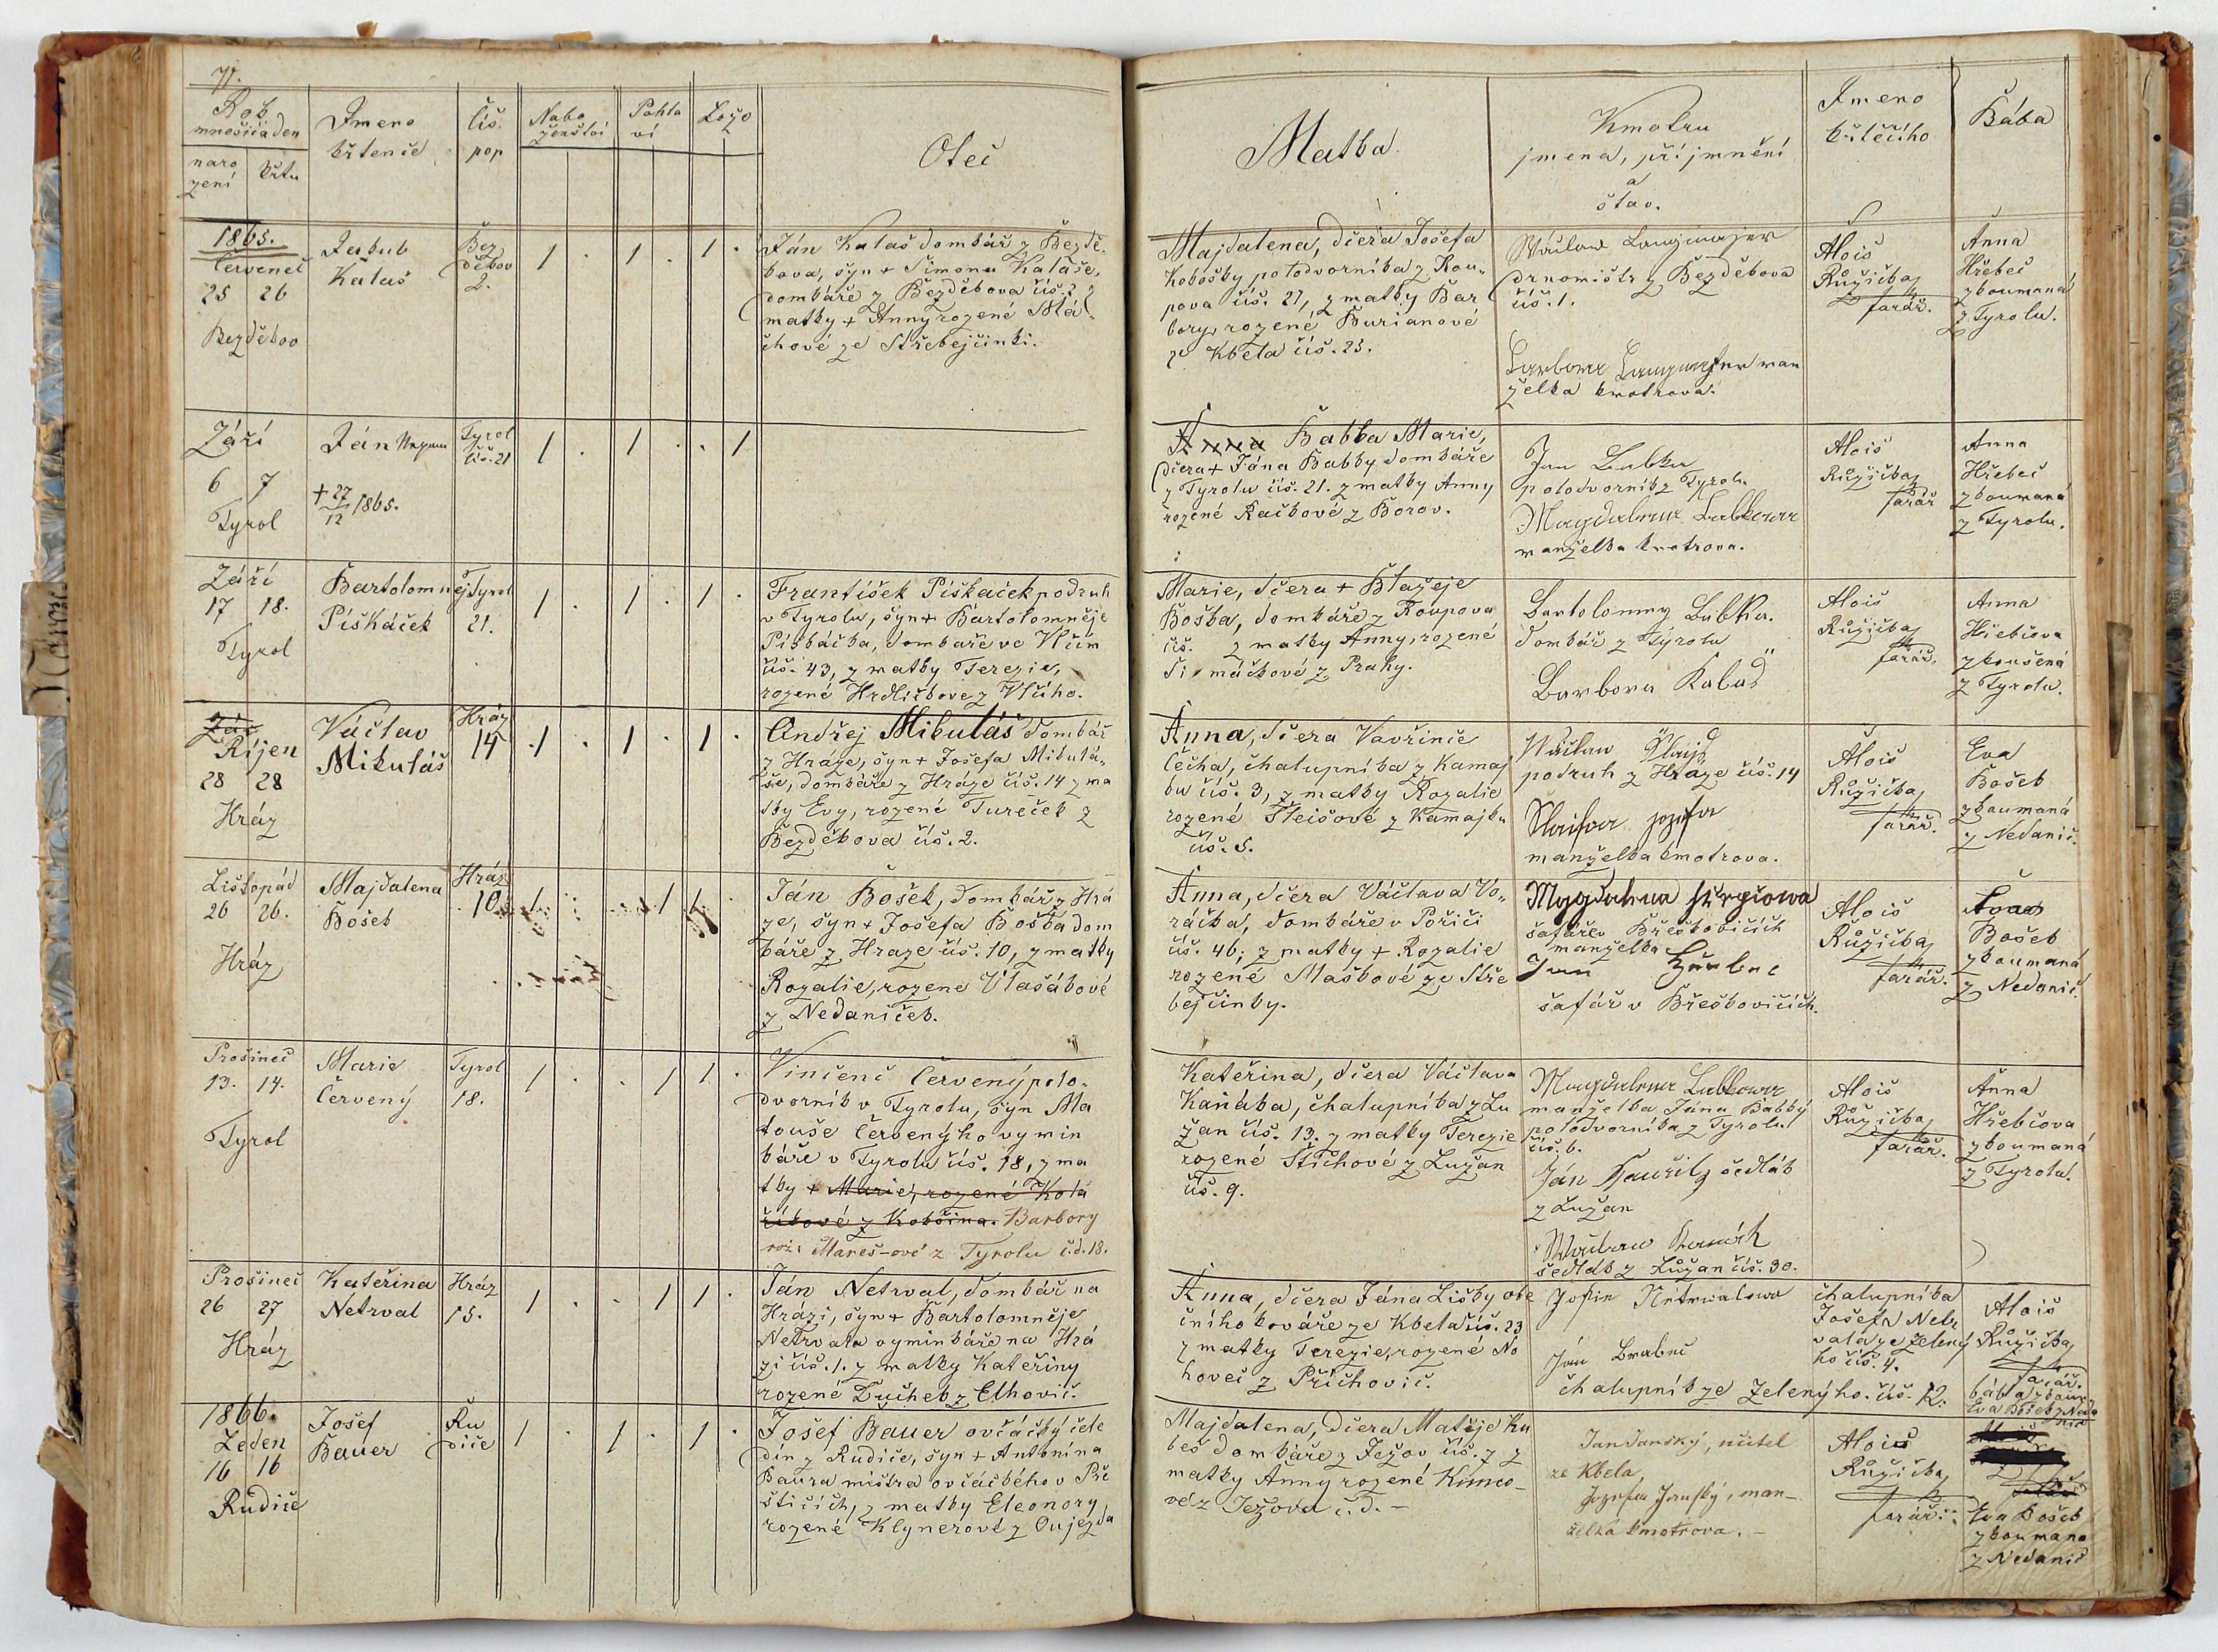 71.
Rok
mnesic a den
naro
zení
křtu
Jmeno
křtence
čís.
pop
Nabo
ženství
Pohla
ví
Lože
Otec
Matka
Kmotru
jmena, příjmnění
a
stav.
Jmeno
křtícího
Bába
1865.
Červenec
25 26
Bezděkov
Jakub
Kalaš
Bez
děkov
2.
1 . 1 . 1 .
Ján Kalaš domkář z Bezdě-
kova, syn + Šimona Kalaše,
domkáře z Bezděkova čís. 2 z
matky + Anny rozené Má-
chové ze Střebejčinki.
Majdalena, dcera Josefa
Kobosky polodvorníka z Rou-
pova čís. 27, z matky Bar
bory, rozené Burianové
ze Kbela čís. 23.
Václav Langmajer
drnomistr z Bezděkova
čís. 1.
Barbora Langmajer man
želka kmotrova.
Alois
Růžička
farář.
Anna
Hřebec
zkoumaná
z Tyrolu.
Září
6 7
Tyrol
Ján Nepom
+ 27/12 1865.
Tyrol
čís. 21
1 . 1 . . 1
Anna Babka Marie,
dcera + Jána Babky domkáře
z Tyrolu čís. 21. z matky Anny
rozené Račkové z Borov.
Jan Babka
polodvorník z Tyrolu
Magdalena Babkova
manželka kmotrova.
Alois
Růžička
farář
Anna
Hřebec
zkoumaná
z Tyrolu.
Září
17 18.
Tyrol
Bartolomněj
Piskáček
Tyrol
21.
1 . 1 . 1 .
František Piskáček podruh
v Tyrolu, syn + Bartolomněje
Piskáčka, domkaře ve Vlčím
čís. 43, z matky Terezie,
rozené Hrdličkove z Vlčího.
Marie, dcera + Blažeje
Boška, domkáře z Roupova
čís. z matky Anny, rozené
Ši máčkové z Prahy.
Bartolomny Babka.
domkář z Tyrolu
Barbora Kalaš
Alois
Růžička
farář.
Anna
Hřebcova
zkoušená
z Tyrolu.
Zář
Říjen
28 28
Hráz
Václav
Mikuláš
Hráz
14
1 . 1 . 1 .
Ondřej Mikuláš domkář
z Hráze, syn + Josefa Mikulá-
še, domkáře z Hráze čís. 14 z ma
tky Evy, rozené Tureček z
Bezděkova čís. 2.
Anna, dcera Vavřince
Čecha, chalupníka z Kamaj
ku čís. 3, z matky Rozalie
rozené Šleisové z Kamajku
čís. 5.
Václav Šlajs
podruh z Hráze čís. 14
Josefa
manželka kmotrova.
Alois
Růžička
farář.
Eva
Bošek
zkoumaná
z Nedanic.
Listopád
26 26.
Hráz
Majdalena
Bošek
Hráz
10
1 . . 1 1 .
Ján Bošek, domkář z Hrá
ze, syn + Josefa Boška dom
káře z Hraze čís. 10, z matky
Rozalie, rozene Vlasákové
z Nedaniček.
Anna, dcera Václava Vo-
ráčka, domkáře v Poříčí
čís. 46; z matky + Rozalie
rozené Maškové ze Stře
bejčinky.
Magdalena
šafáře v Břeskovicích
manželka
Jan
šafář v Břeskovicích.
Alois
Růžička
farář.
Eva
Bošek
zkoumaná
z Nedanic.
Prosinec
13. 14.
Tyrol
Marie
Červený
Tyrol
18.
1 . . 1 1 .
Vincenc Červený polo-
dvorník v Tyrolu, syn Ma
touše Červenýho vymin
káře v Tyrolu čís. 18, z ma
tky + Marie, rozené Kolá
říkové z Kokšina. Barbory
roz. Mareš-ové z Tyrolu č.d. 18.
Kateřina, dcera Václava
Kaňáka, chalupníka z Lu
žan čís. 13. z matky Terezie
rozené Stichové z Lužan
čís. 9.
Magdalena Babkova
manželka Jána Babky
polodvorníka z Tyrolu
čís. 6.
Ján sedlák
z Lužan
Václav
sedlák z Lužan čís. 30.
Alois
Růžička
farář.
Anna
Hřebcova
zkoumaná
z Tyrolu.
Prosinec
26 27
Hráz
Kateřina
Netrval
Hráz
15.
1 . . 1 1 .
Ján Netrval, domkář na
Hrázi, syn + Bartolomněje
Netrvala vyminkáře na Hrá
zi čís. 1. z matky Kateřiny
rozené Duchek z Elhovic.
Anna, dcera Jána Lišky obe
cního kováře ze Kbela čís. 23
z matky Terezie, rozené No
hovec z Příchovic.
Žofie Netrvalova
chalupníka
Josefa Netr
vala ze Zelený
ho čís. 4.
Ján Brabec
chalupník ze Zelenýho. čís. 12.
Alois
Růžička
farář.
bába zkoum
Eva Bošek z Neda
nic
1866.
Leden
16 16
Rudice
Josef
Bauer
Ru
dice
1 . 1 . 1 .
Josef Bauer ovčácký čele
dín z Rudice, syn + Antonína
Baura mistra ovčáckého v Pře
šticích, z matky Eleonory,
rozené Klynerové z Oujezda
Majdalena, dcera Matěje Ku
beš domkáře z Ježov čís. 7 z
matky Anny rozené Kunco-
vé z Ježova č.d. -
Jan Janský, učitel
ze Kbela,
Josefa Janský, man-
želka kmotrova. -
Alois
Růžička
farář.
Eva Bošek
zkoumana
z Nedanic